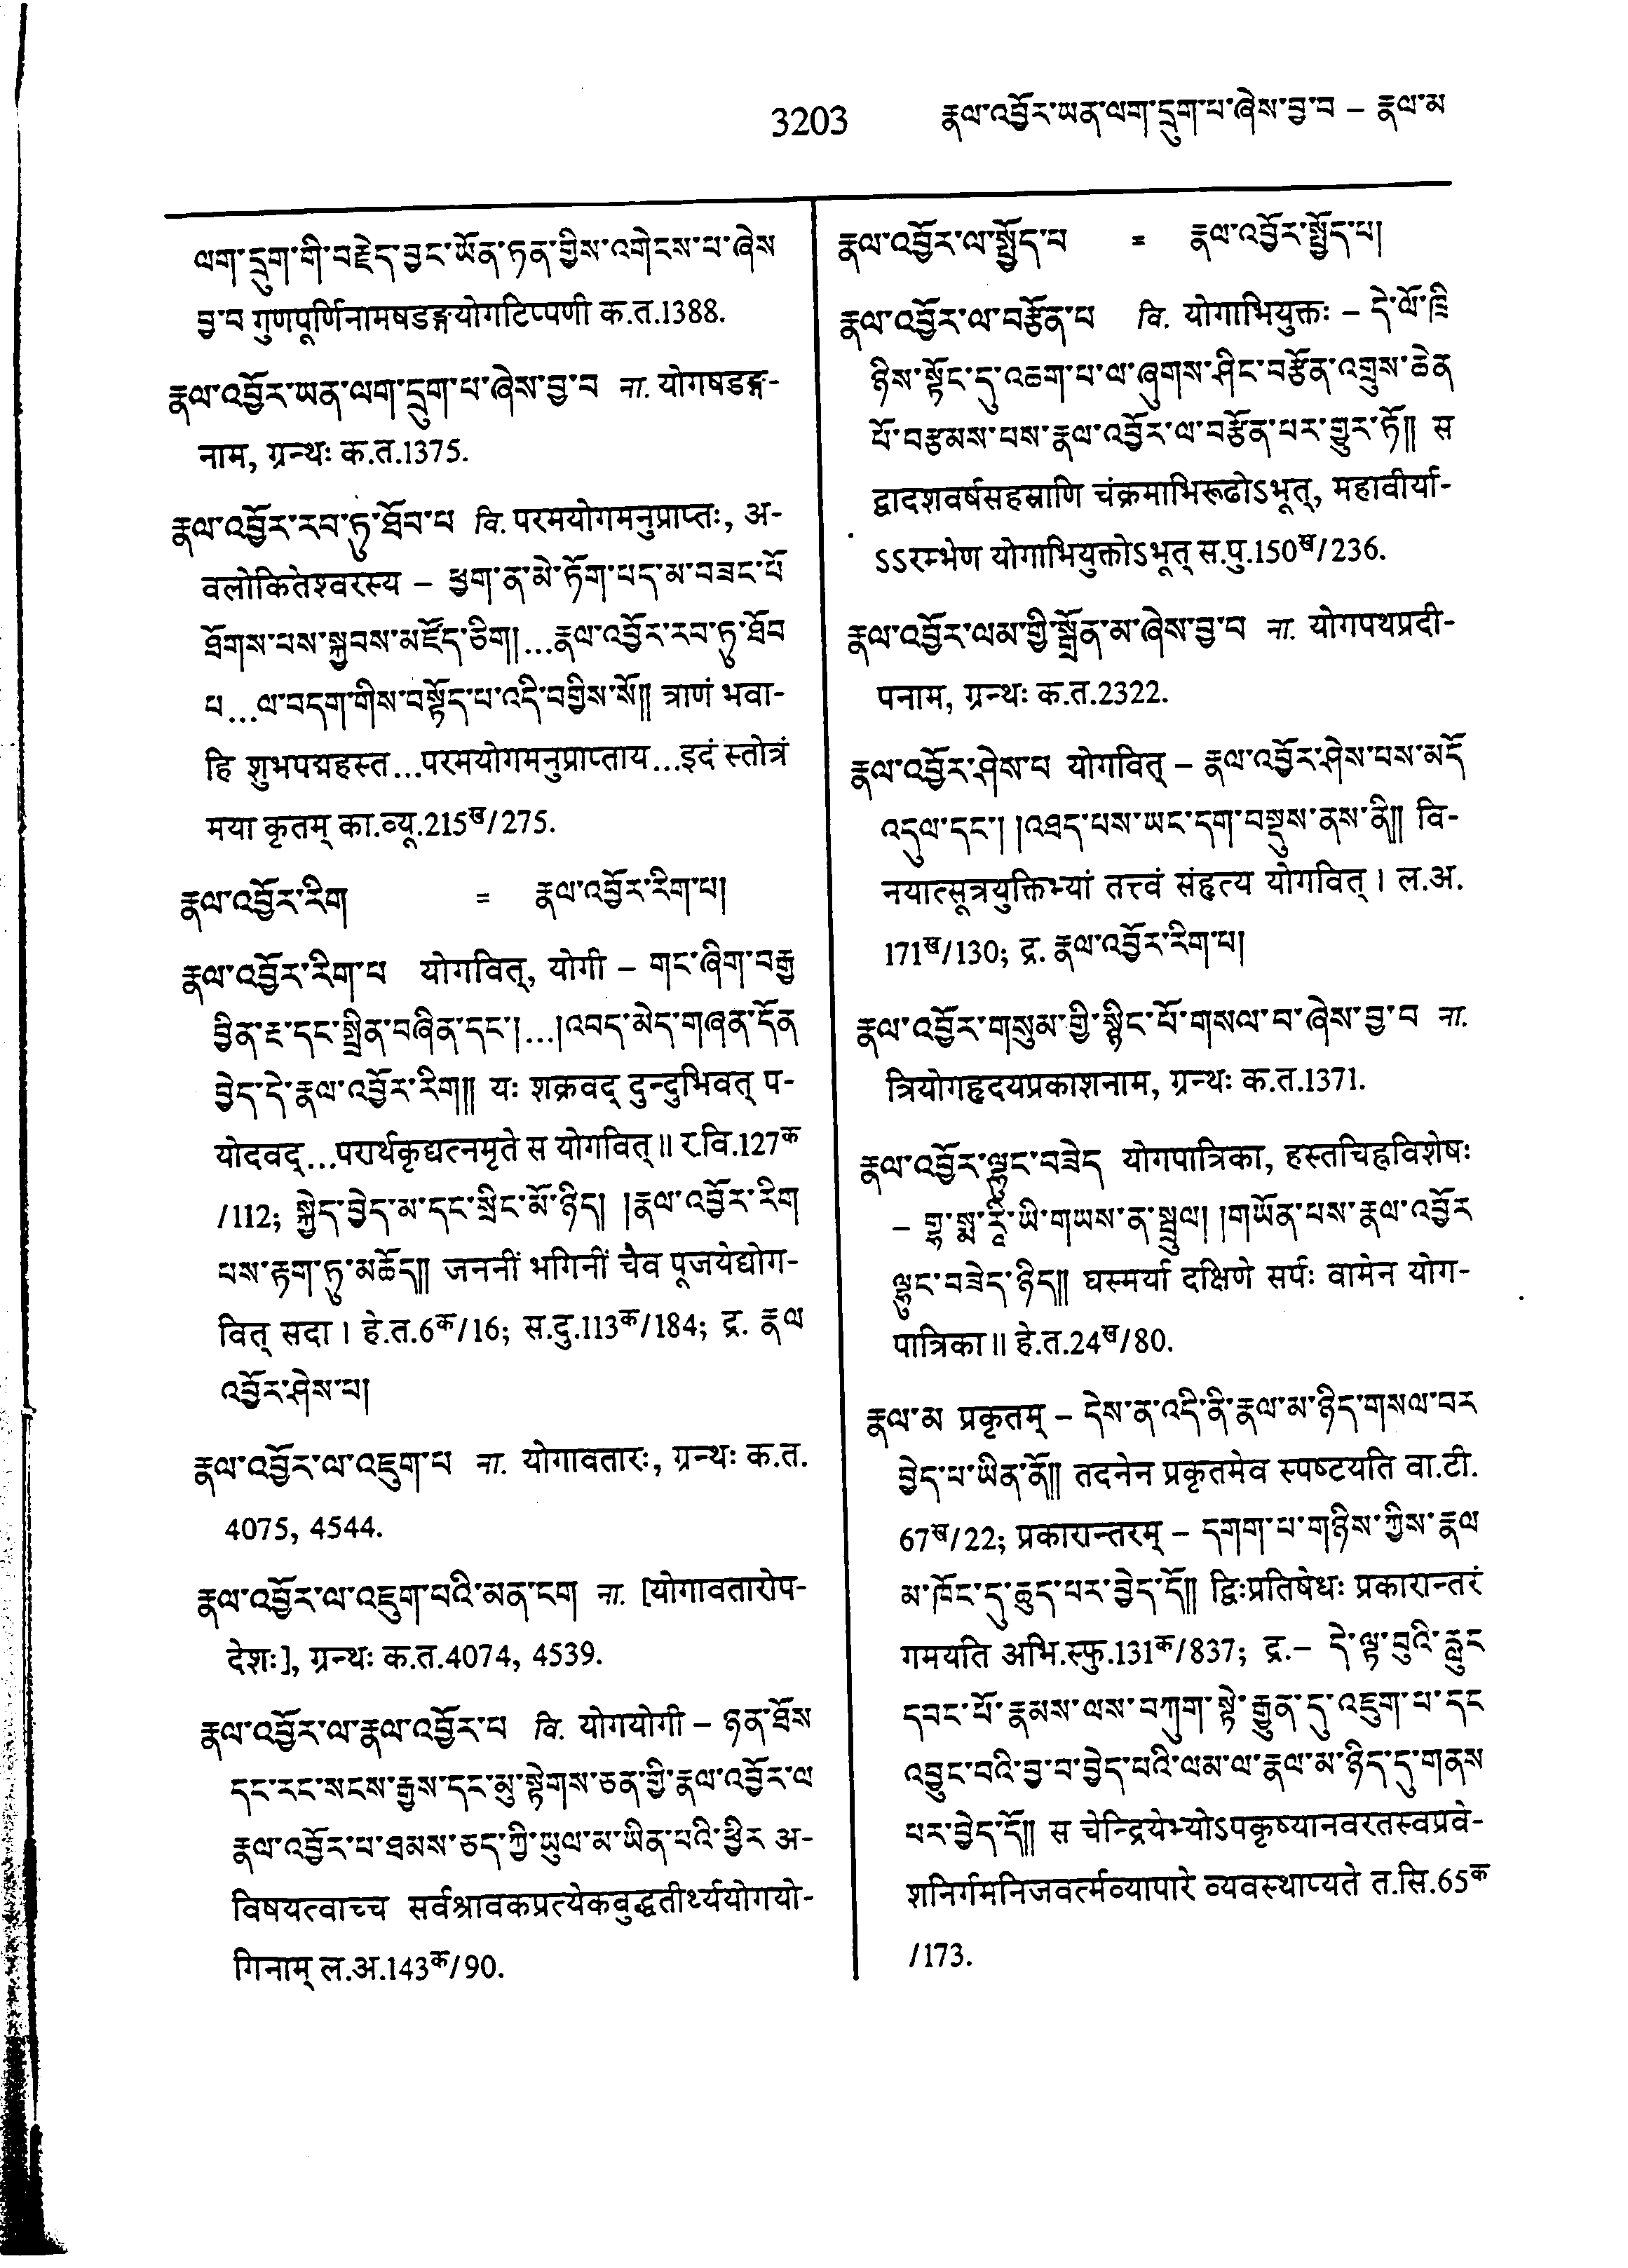 3203 རྣལ་འབྱོར་ཡན་ལག་དྲུག་པ་ཞེས་བྱ་བ – རྣལ་མ
ལག་དྲུག་གི་བརྗེད་བྱང་ཡོན་ཏན་གྱིས་འགེངས་པ་ཞེས
བྱ་བ गुणपूर्णिनामषडङ्गयोगटिप्पणी क.त.1388.
རྣལ་འབྱོར་ཡན་ལག་དྲུག་པ་ཞེས་བྱ་བ ना. योगषडङ्ग-
नाम, ग्रन्थः क.त.1375.
རྣལ་འབྱོར་རབ་ཏུ་ཐོབ་པ वि. परमयोगमनुप्राप्तः, अ-
वलोकितेश्वरस्य – ཕྱག་ན་མེ་ཏོག་པད་མ་བཟང་པོ
ཐོགས་པས་སྐྱབས་མཛོད་ཅིག།...རྣལ་འབྱོར་རབ་ཏུ་ཐོབ
པ...ལ་བདག་གིས་བསྟོད་པ་འདི་བགྱིས་སོ།། त्राणं भवा-
हि शुभपद्महस्त...परमयोगमनुप्राप्ताय...इदं स्तोत्रं
मया कृतम् का.व्यू.215ख/275.
རྣལ་འབྱོར་རིག = རྣལ་འབྱོར་རིག་པ།
རྣལ་འབྱོར་རིག་པ योगवित्, योगी – གང་ཞིག་བརྒྱ
བྱིན་རྔ་དང་སྤྲིན་བཞིན་དང་།...།འབད་མེད་གཞན་དོན
བྱེད་དེ་རྣལ་འབྱོར་རིག།། यः शक्रवद् दुन्दुभिवत् प-
योदवद्...परार्थकृद्यत्नमृते स योगवित्॥ र.वि.127क
/112; སྐྱེད་བྱེད་མ་དང་སྲིང་མོ་ཉིད། །རྣལ་འབྱོར་རིག
པས་རྟག་ཏུ་མཆོད།། जननीं भगिनीं चैव पूजयेद्योग-
वित् सदा। हे.त.6क/16; स.दु.113क/184; द्र. རྣལ
འབྱོར་ཤེས་པ།
རྣལ་འབྱོར་ལ་འཇུག་པ ना. योगावतारः, ग्रन्थः क.त.
4075, 4544.
རྣལ་འབྱོར་ལ་འཇུག་པའི་མན་ངག ना. [योगावतारोप-
देशः], ग्रन्थः क.त.4074, 4539.
རྣལ་འབྱོར་ལ་རྣལ་འབྱོར་པ वि. योगयोगी – ཉན་ཐོས
དང་རང་སངས་རྒྱས་དང་མུ་སྟེགས་ཅན་གྱི་རྣལ་འབྱོར་ལ
རྣལ་འབྱོར་པ་ཐམས་ཅད་ཀྱི་ཡུལ་མ་ཡིན་པའི་ཕྱིར अ-
विषयत्वाच्च सर्वश्रावकप्रत्येकबुद्धतीर्थ्ययोगयो-
गिनाम् ल.अ.143क/90.
རྣལ་འབྱོར་ལ་སྤྱོད་པ = རྣལ་འབྱོར་སྤྱོད་པ།
རྣལ་འབྱོར་ལ་བརྩོན་པ वि. योगाभियुक्तः – དེ་ལོ་ཁྲི
ཉིས་སྟོང་དུ་འཆག་པ་ལ་ཞུགས་ཤིང་བརྩོན་འགྲུས་ཆེན
པོ་བརྩམས་པས་རྣལ་འབྱོར་ལ་བརྩོན་པར་གྱུར་ཏོ།། स
द्वादशवर्षसहस्राणि चंक्रमाभिरूढोऽभूत्, महावीर्या-
ऽऽरम्भेण योगाभियुक्तोऽभूत् स.पु.150ख/236.
རྣལ་འབྱོར་ལམ་གྱི་སྒྲོན་མ་ཞེས་བྱ་བ ना. योगपथप्रदी-
पनाम, ग्रन्थः क.त.2322.
རྣལ་འབྱོར་ཤེས་པ योगवित् – རྣལ་འབྱོར་ཤེས་པས་མདོ
འདུལ་དང་། །འཐད་པས་ཡང་དག་བསྡུས་ནས་ནི།། वि-
नयात्सूत्रयुक्तिभ्यां तत्त्वं संहृत्य योगवित्। ल.अ.
171ख/130; द्र. རྣལ་འབྱོར་རིག་པ།
རྣལ་འབྱོར་གསུམ་གྱི་སྙིང་པོ་གསལ་བ་ཞེས་བྱ་བ ना.
त्रियोगहृदयप्रकाशनाम, ग्रन्थः क.त.1371.
རྣལ་འབྱོར་ལྷུང་བཟེད योगपात्रिका, हस्तचिह्नविशेषः
– གྷ་སྨ་རཱི་ཡི་གཡས་ན་སྦྲུལ། །གཡོན་པས་རྣལ་འབྱོར
ལྷུང་བཟེད་ཉིད།། घस्मर्या दक्षिणे सर्पः वामेन योग-
पात्रिका॥ हे.त.24ख/80.
རྣལ་མ प्रकृतम् – དེས་ན་འདི་ནི་རྣལ་མ་ཉིད་གསལ་བར
བྱེད་པ་ཡིན་ནོ།། तदनेन प्रकृतमेव स्पष्टयति वा.टी.
67ख/22; प्रकारान्तरम् – དགག་པ་གཉིས་ཀྱིས་རྣལ
མ་ཁོང་དུ་ཆུད་པར་བྱེད་དོ།། द्विःप्रतिषेधः प्रकारान्तरं
गमयति अभि.स्फु.131क/837; द्र.– དེ་ལྟ་བུའི་རླུང
དབང་པོ་རྣམས་ལས་བཀུག་སྟེ་རྒྱུན་དུ་འཇུག་པ་དང
འབྱུང་བའི་བྱ་བ་བྱེད་པའི་ལམ་ལ་རྣལ་མ་ཉིད་དུ་གནས
པར་བྱེད་དོ།། स चेन्द्रियेभ्योऽपकृष्यानवरतस्वप्रवे-
शनिर्गमनिजवर्त्मव्यापारे व्यवस्थाप्यते त.सि.65क
/173.